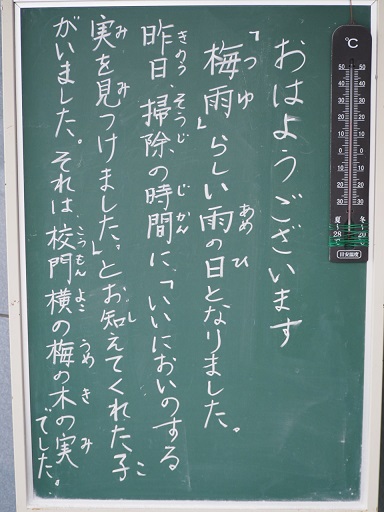 おはようございます
「梅雨」らしい雨の日となりました。
つゆ
あめ
ひ
昨日、掃除の時間に、「いいにおいのする
きのう
そうじ
じかん
実を見つけました。」とお知えてくれた子
み
み
し
こ
がいました。それは、校門横の梅の木の実
こうもん
よこ
うめ
き
み
でした。
℃
50 50
40 40
30 30
20 20
10 10
0 0
10 10
20 20
30 30
夏 冬
28 20
目安温度